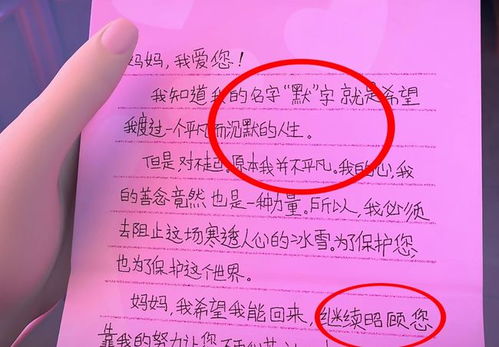 妈妈，我爱您！
我知道我的名字“默”字就是希望
我度过一个平凡而沉默的人生。
但是，对不起。原本我并不平凡。我的心，我
的善念竟然也是一种力量。所以，我必须
去阻止这场寒透人心的冰雪。为了保护您
也为了保护这个世界。
妈妈，我希望我能回来，继续照顾您
靠我的努力让您不再